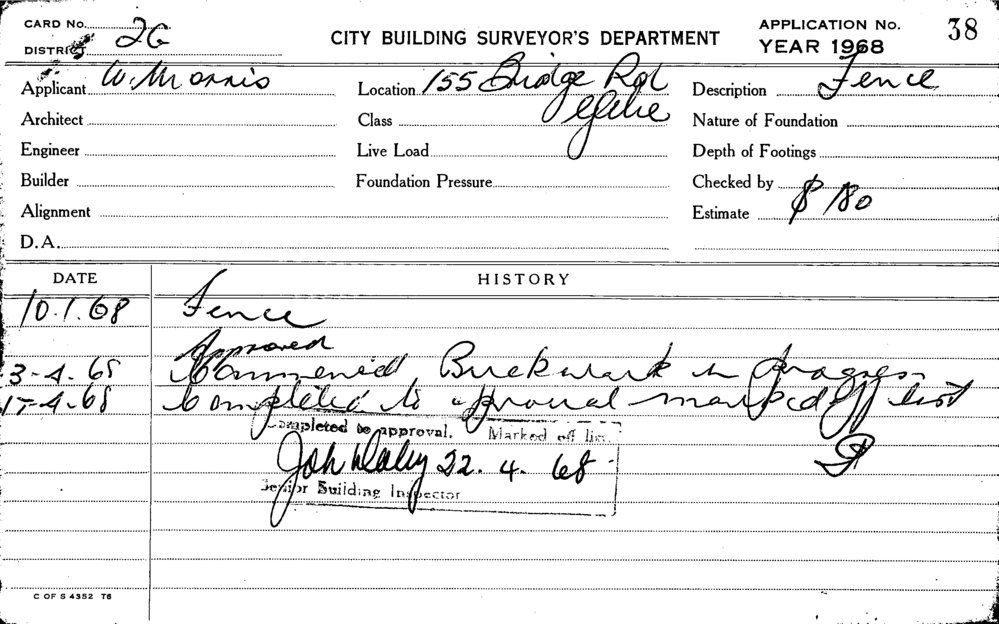 CARD No.
DISTRICT 2G
CITY BUILDING SURVEYOR'S DEPARTMENT
APPLICATION No. 38
YEAR 1968
Applicant W. Morris
Location 155 Bridge Rd
Glebe
Description Fence
Architect
Class
Nature of Foundation
Engineer
Live Load
Depth of Footings
Builder
Foundation Pressure
Checked by
Alignment
Estimate $180
D.A.
DATE
HISTORY
10.1.68 Fence
Approved
3-4.68 Commenced Brickwork in progress
17-4-68 Completed to approval marked off list
Completed to approval. Marked off list.
22.4.68
Senior Building Inspector
C OF S 4352 T6